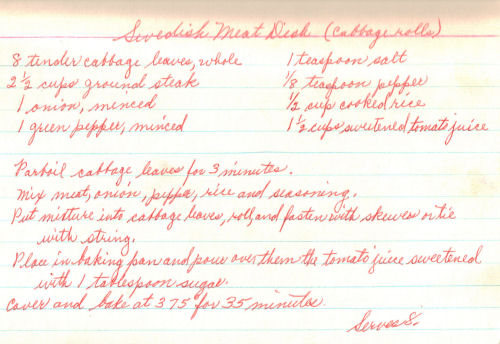 Swedish Meat Dish (Cabbage rolls)
8 tender cabbage leaves, whole
2 1/2 cups ground steak
1 onion, minced
1 green pepper, minced
1 teaspoon salt
1/8 teaspoon pepper
1/2 cup cooked rice
1 1/2 cups sweetened tomato juice
Parboil cabbage leaves for 3 minutes.
Mix meat, onion, pepper, rice and seasoning.
Put mixture into cabbage leaves, roll, and fasten with skewers or tie
with string.
Place in baking pan and pour over them the tomato juice sweetened
with 1 tablespoon sugar.
Cover and bake at 375° for 35 minutes.
Serves 8.